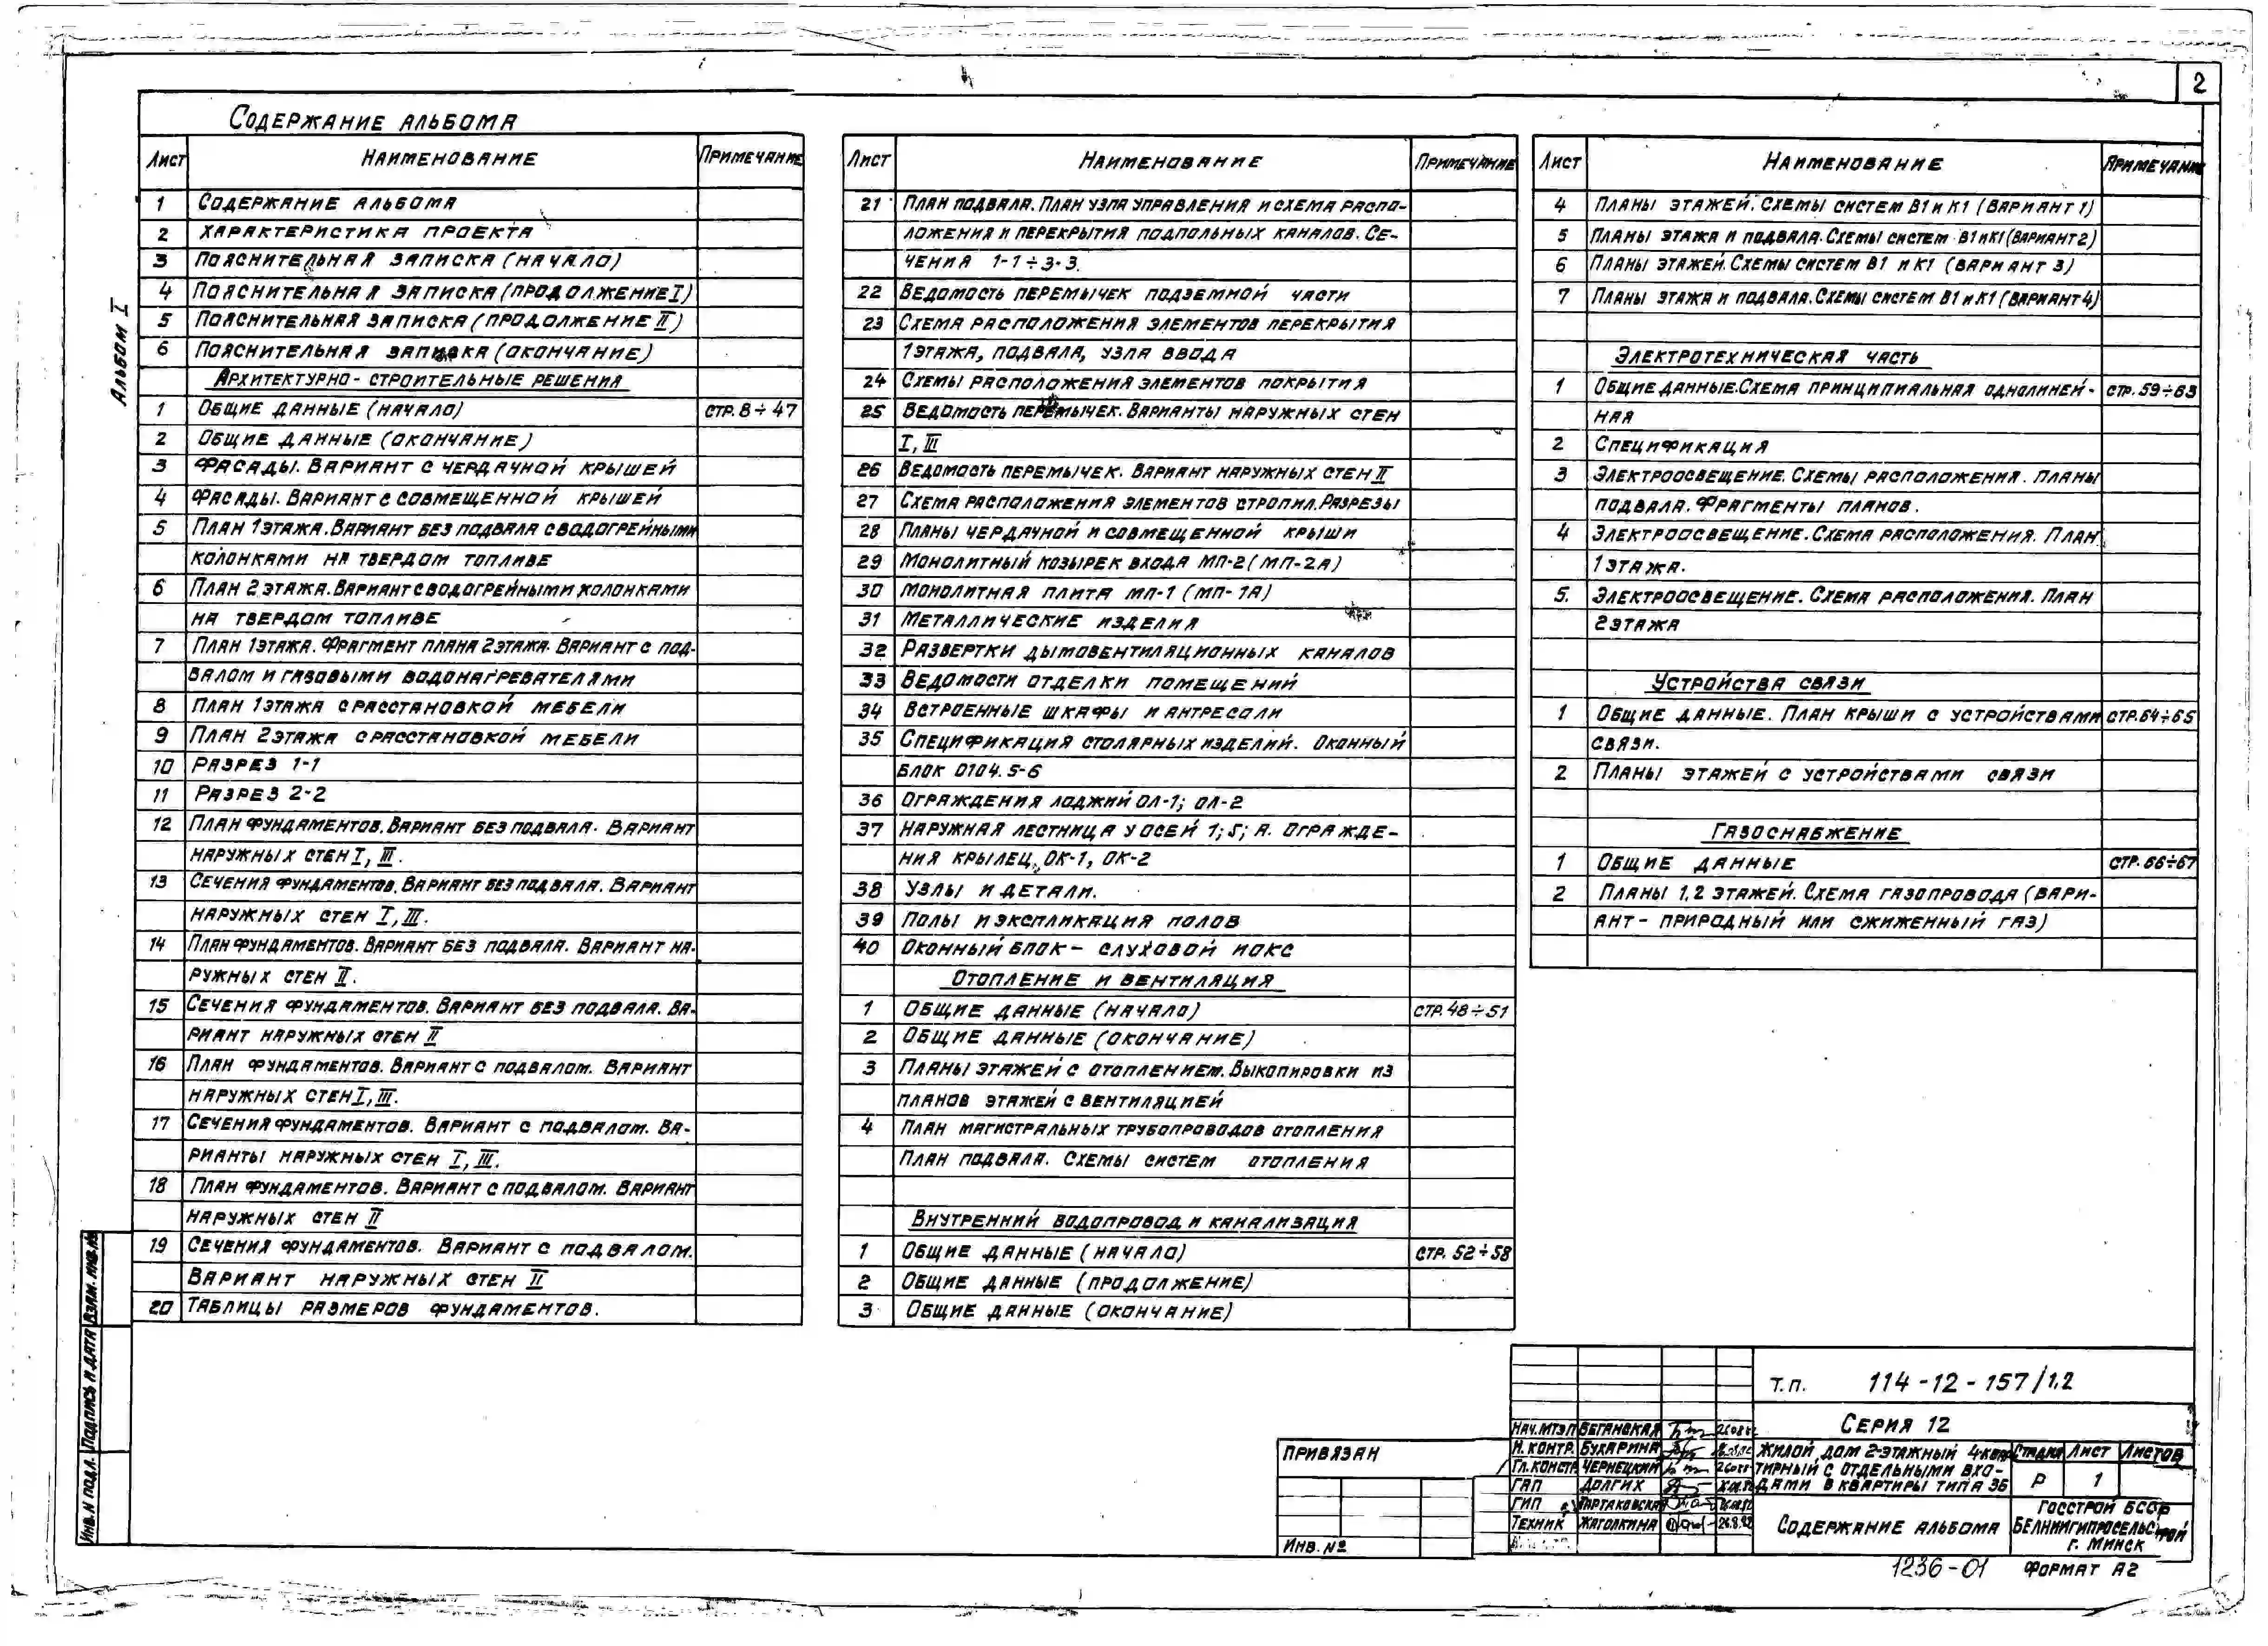 2
Содержание альбома
Альбом I
Лист Наименование Примечание
1 Содержание альбома
2 Характеристика проекта
3 Пояснительная записка (начало)
4 Пояснительная записка (продолжение I)
5 Пояснительная записка (продолжение II)
6 Пояснительная записка (окончание)
Архитектурно-строительные решения
1 Общие данные (начало) стр. 8÷47
2 Общие данные (окончание)
3 Фасады. Вариант с чердачной крышей
4 Фасады. Вариант с совмещенной крышей
5 План 1 этажа. Вариант без подвала с водогрейными
колонками на твердом топливе
6 План 2 этажа. Вариант с водогрейными колонками
на твердом топливе
7 План 1 этажа. Фрагмент плана 2 этажа. Вариант с под-
валом и газовыми водонагревателями
8 План 1 этажа с расстановкой мебели
9 План 2 этажа с расстановкой мебели
10 Разрез 1-1
11 Разрез 2-2
12 План фундаментов. Вариант без подвала. Вариант
наружных стен I, III.
13 Сечения фундаментов. Вариант без подвала. Вариант
наружных стен I, III.
14 План фундаментов. Вариант без подвала. Вариант на-
ружных стен II.
15 Сечения фундаментов. Вариант без подвала. Ва-
риант наружных стен II
16 План фундаментов. Вариант с подвалом. Вариант
наружных стен I, III.
17 Сечения фундаментов. Вариант с подвалом. Ва-
рианты наружных стен I, III.
18 План фундаментов. Вариант с подвалом. Вариант
наружных стен II
19 Сечения фундаментов. Вариант с подвалом.
Вариант наружных стен II
20 Таблицы размеров фундаментов.
Лист Наименование Примечание
21 План подвала. План узла управления и схема распо-
ложения и перекрытия подпольных каналов. Се-
чения 1-1÷3-3.
22 Ведомость перемычек подземной части
23 Схема расположения элементов перекрытия
1 этажа, подвала, узла ввода
24 Схемы расположения элементов покрытия
25 Ведомость перемычек. Варианты наружных стен
I, III
26 Ведомость перемычек. Вариант наружных стен II
27 Схема расположения элементов стропил. Разрезы
28 Планы чердачной и совмещенной крыши
29 Монолитный козырек входа МП-2 (МП-2а)
30 Монолитная плита МП-1 (МП-1а)
31 Металлические изделия
32 Развертки дымовентиляционных каналов
33 Ведомости отделки помещений
34 Встроенные шкафы и антресоли
35 Спецификация столярных изделий. Оконный
блок 0104.5-6
36 Ограждения лоджий ОЛ-1; ОЛ-2
37 Наружная лестница у осей 1; 5; А. Огражде-
ния крылец, ОК-1, ОК-2
38 Узлы и детали.
39 Полы и экспликация полов
40 Оконный блок - слуховой иокс
Отопление и вентиляция
1 Общие данные (начало) стр. 48÷51
2 Общие данные (окончание)
3 Планы этажей с отоплением. Выкопировки из
планов этажей с вентиляцией
4 План магистральных трубопроводов отопления
План подвала. Схемы систем отопления
Внутренний водопровод и канализация
1 Общие данные (начало) стр. 52÷58
2 Общие данные (продолжение)
3 Общие данные (окончание)
Лист Наименование Примечание
4 Планы этажей. Схемы систем В1 и К1 (вариант 1)
5 Планы этажа и подвала. Схемы систем В1 и К1 (вариант 2)
6 Планы этажей. Схемы систем В1 и К1 (вариант 3)
7 Планы этажа и подвала. Схемы систем В1 и К1 (вариант 4)
Электротехническая часть
1 Общие данные. Схема принципиальная однолиней- стр. 59÷63
ная
2 Спецификация
3 Электроосвещение. Схемы расположения. Планы
подвала. Фрагменты планов.
4 Электроосвещение. Схема расположения. План
1 этажа.
5. Электроосвещение. Схема расположения. План
2 этажа
Устройства связи
1 Общие данные. План крыши с устройствами стр. 64÷65
связи.
2 Планы этажей с устройствами связи
Газоснабжение
1 Общие данные стр. 66÷67
2 Планы 1,2 этажей. Схема газопровода (вари-
ант - природный или сжиженный газ)
Инв. № подл. Подпись и дата Взам. инв. №
Привязан
Инв. №
Т.п. 114-12-157/1.2
Серия 12
Нач. МТЭП Беганская
Н. контр. Бухарина
Гл. констр. Чернецкий
ГАП Долгих
ГИП
Техник Жаголкина 26.8.82
Жилой дом 2-этажный 4-квар
тирный с отдельными вхо-
дами в квартиры типа 3Б
Стадия Лист Листов
Р 1
Содержание альбома
Госстрой БССР
БелНИИгипросельстрой
г. Минск
1236-01 Формат А2